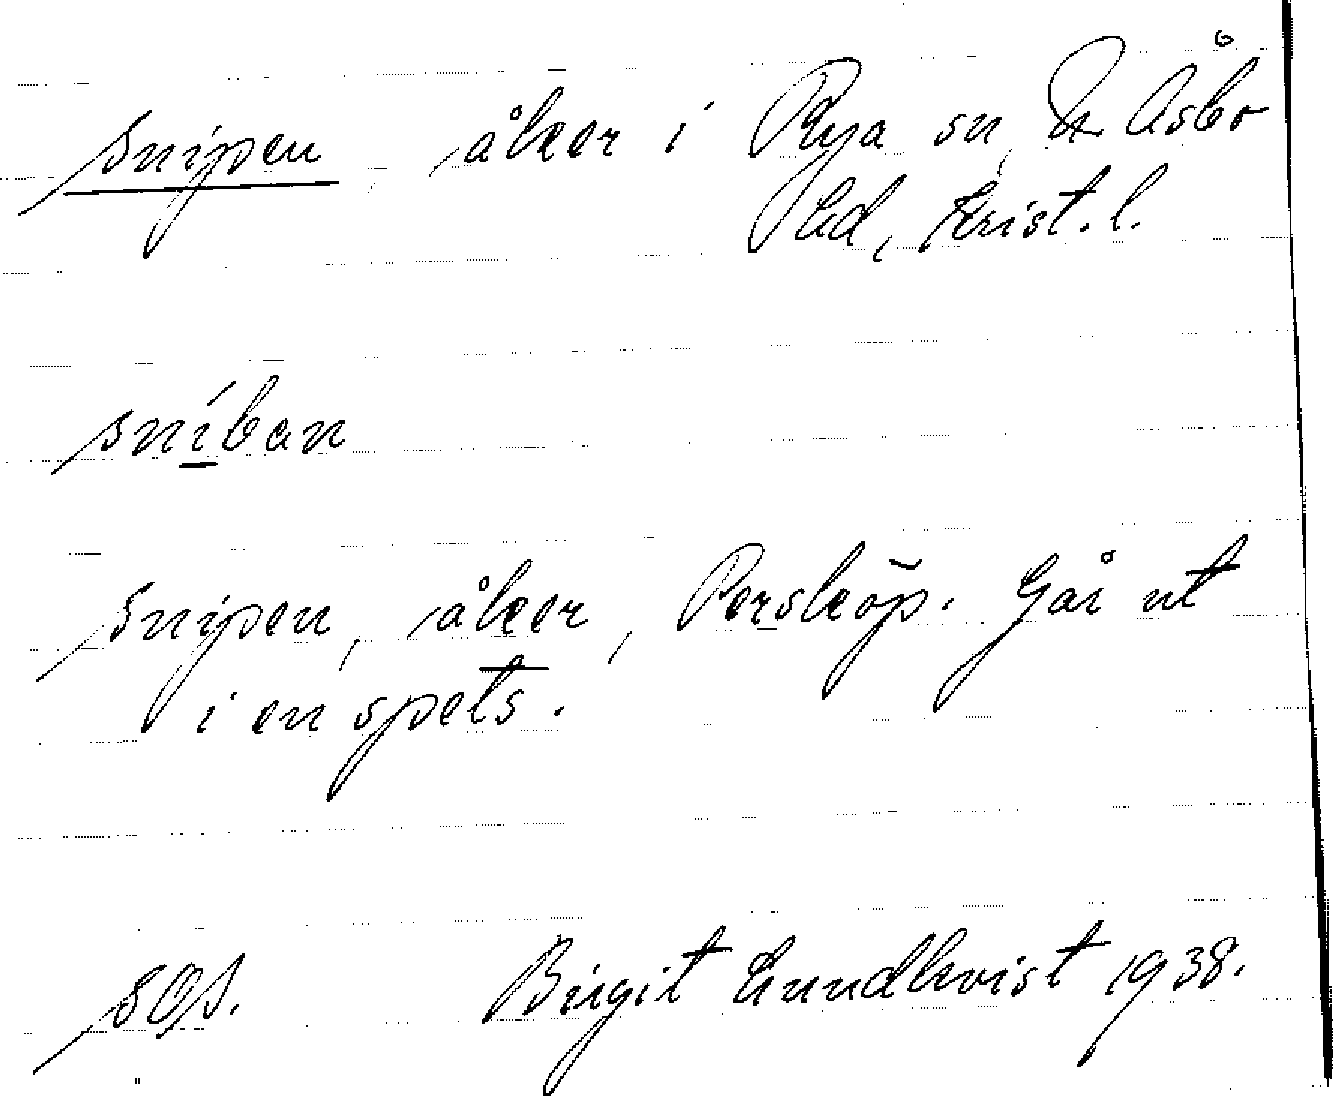 Snipen, åker i Rya sn, N. Åsbo
hd, Krist. l.
sníban
Snipen, åker, Persköp. Går ut
i en spets.
SOS. Birgit Lundkvist 1938.